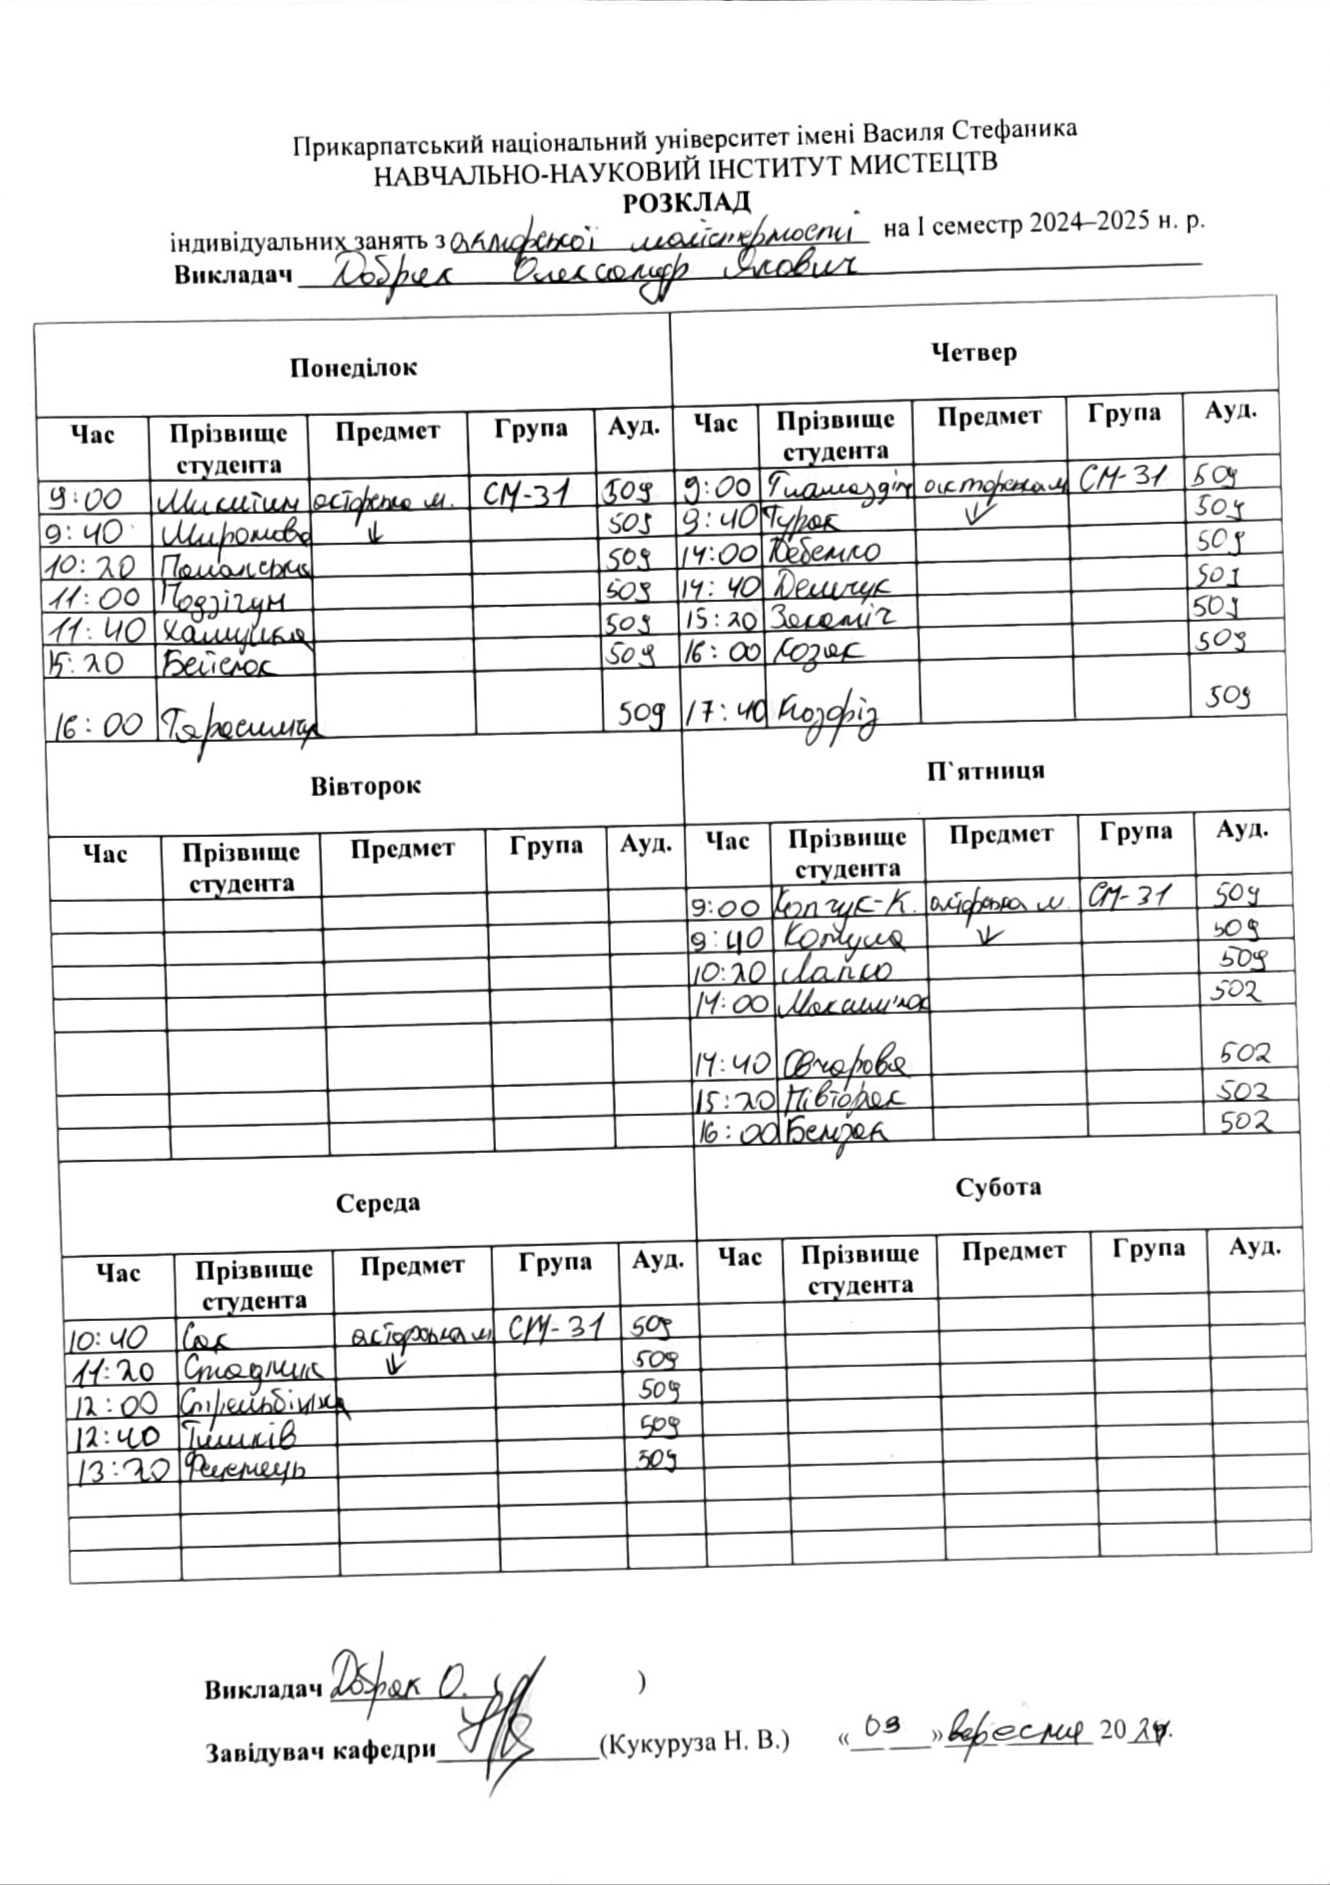 Прикарпатський національний університет імені Василя Стефаника
НАВЧАЛЬНО-НАУКОВИЙ ІНСТИТУТ МИСТЕЦТВ
РОЗКЛАД
індивідуальних занять з акторської майстерності на І семестр 2024–2025 н. р.
Викладач Добрек Олександр Якович
Понеділок
Час Прізвище студента Предмет Група Ауд.
9:00 Микитин акторська м. СМ-31 509
9:40 Миронова ↓ 509
10:20 509
11:00 509
11:40 509
15:20 509
16:00 Тарасимчук 509
Четвер
Час Прізвище студента Предмет Група Ауд.
9:00 акторська м СМ-31 509
9:40 Турак ↓ 509
14:00 509
14:40 Демчук 509
15:20 509
16:00 Козак 509
17:40 509
Вівторок
Час Прізвище студента Предмет Група Ауд.
П`ятниця
Час Прізвище студента Предмет Група Ауд.
9:00 Копчук-К. акторська м. СМ-31 509
9:40 ↓ 509
10:20 509
14:00 502
14:40 Овчарова 502
15:20 Півторак 502
16:00 502
Середа
Час Прізвище студента Предмет Група Ауд.
10:40 Сак акторська м СМ-31 509
11:20 Стадник ↓ 509
12:00 509
12:40 Тимків 509
13:20 509
Субота
Час Прізвище студента Предмет Група Ауд.
Викладач Добрек О. )
Завідувач кафедри (Кукуруза Н. В.) «03» вересня 2024.